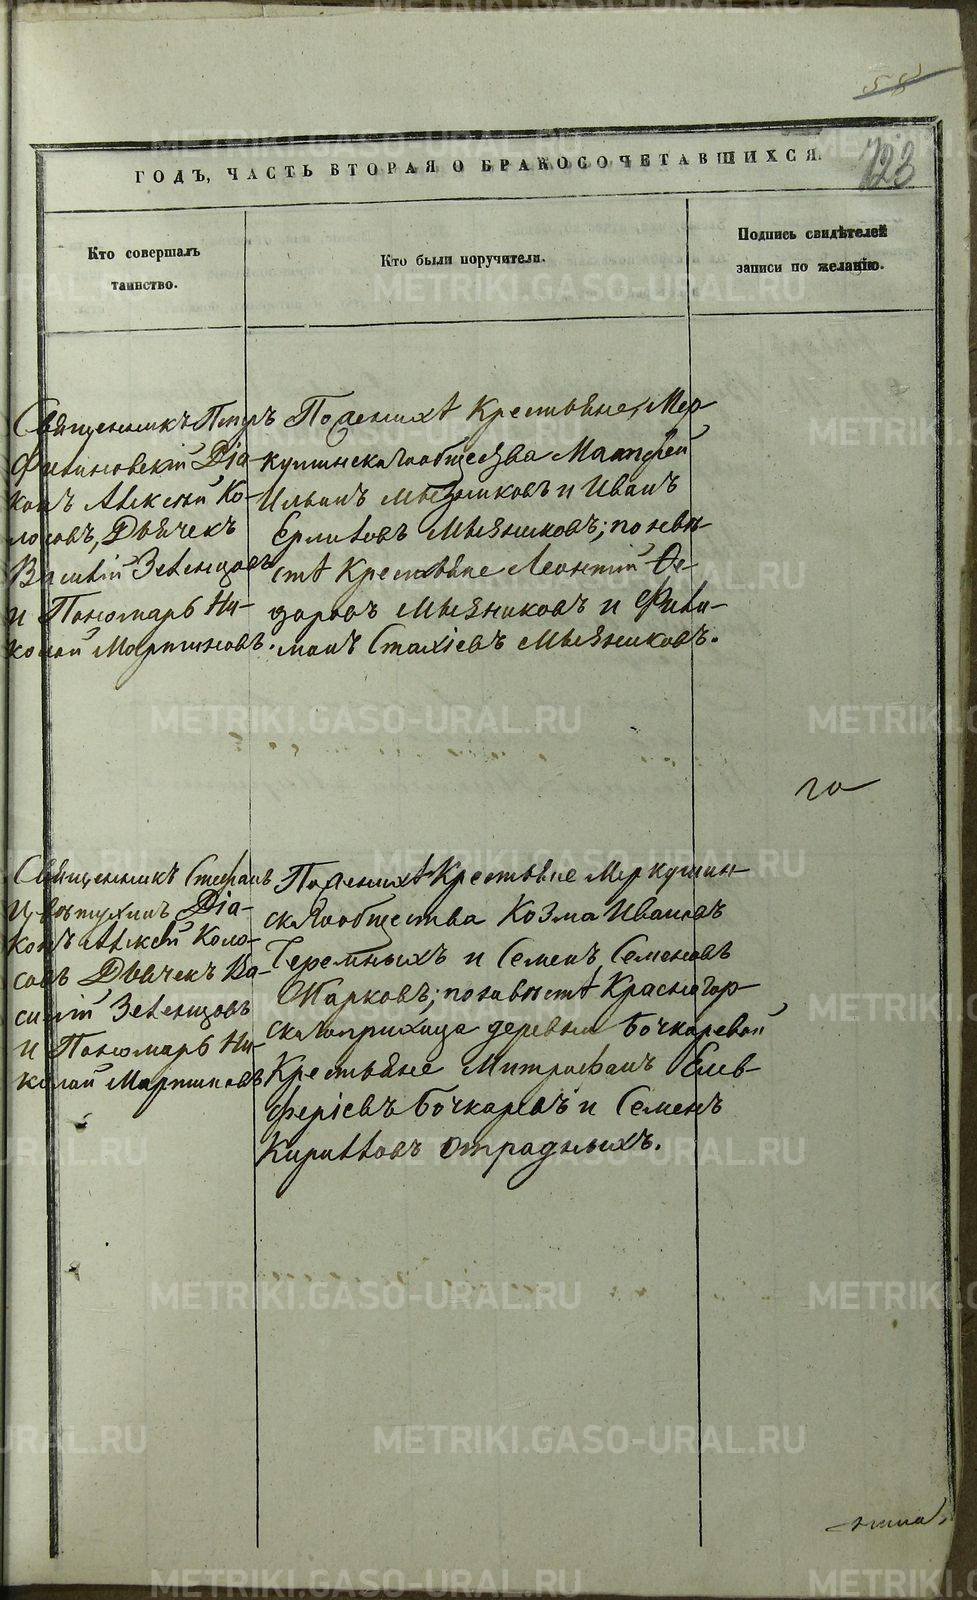 58
ГОДЪ, ЧАСТЬ ВТОРАЯ О БРАКОСОЧЕТАВШИХСЯ.
123
Кто совершалъ
таинство.
Кто были поручители.
Подпись свидѣтелей
записи по желанію.
Священникъ Петръ
Діа-
конъ Алексѣй Ко-
лосовъ, Дьячекъ
Василій Зеленцовъ
и Пономарь Ни-
колай Мартиновъ.
По женихѣ Крестьяне, Мер-
кушинскаго общества Матфей
Ильинъ Мызниковъ и Иванъ
Ермиловъ Мызниковъ; по невѣ-
стѣ Крестьяне Леонтій Ѳе-
доровъ Мызниковъ и Фили-
монъ Стахіевъ Мызниковъ.
го
Священникъ Стефанъ
Цвѣтухинъ Діа-
конъ Алексѣй Коло-
совъ Дьячекъ Ва-
силій Зеленцовъ
и Пономарь Ни-
колай Мартиновъ
По женихѣ Крестьяне Меркушин-
скаго общества Козма Ивановъ
Теремныхъ и Семенъ Семеновъ
Жарковъ; по невѣстѣ Красногор-
скаго прихода деревни Бочкаревой
Крестьяне Митрофанъ Елев-
феріевъ Бочкаревъ и Семенъ
Кирилловъ Отрадныхъ.
METRIKI.GASO-URAL.RU